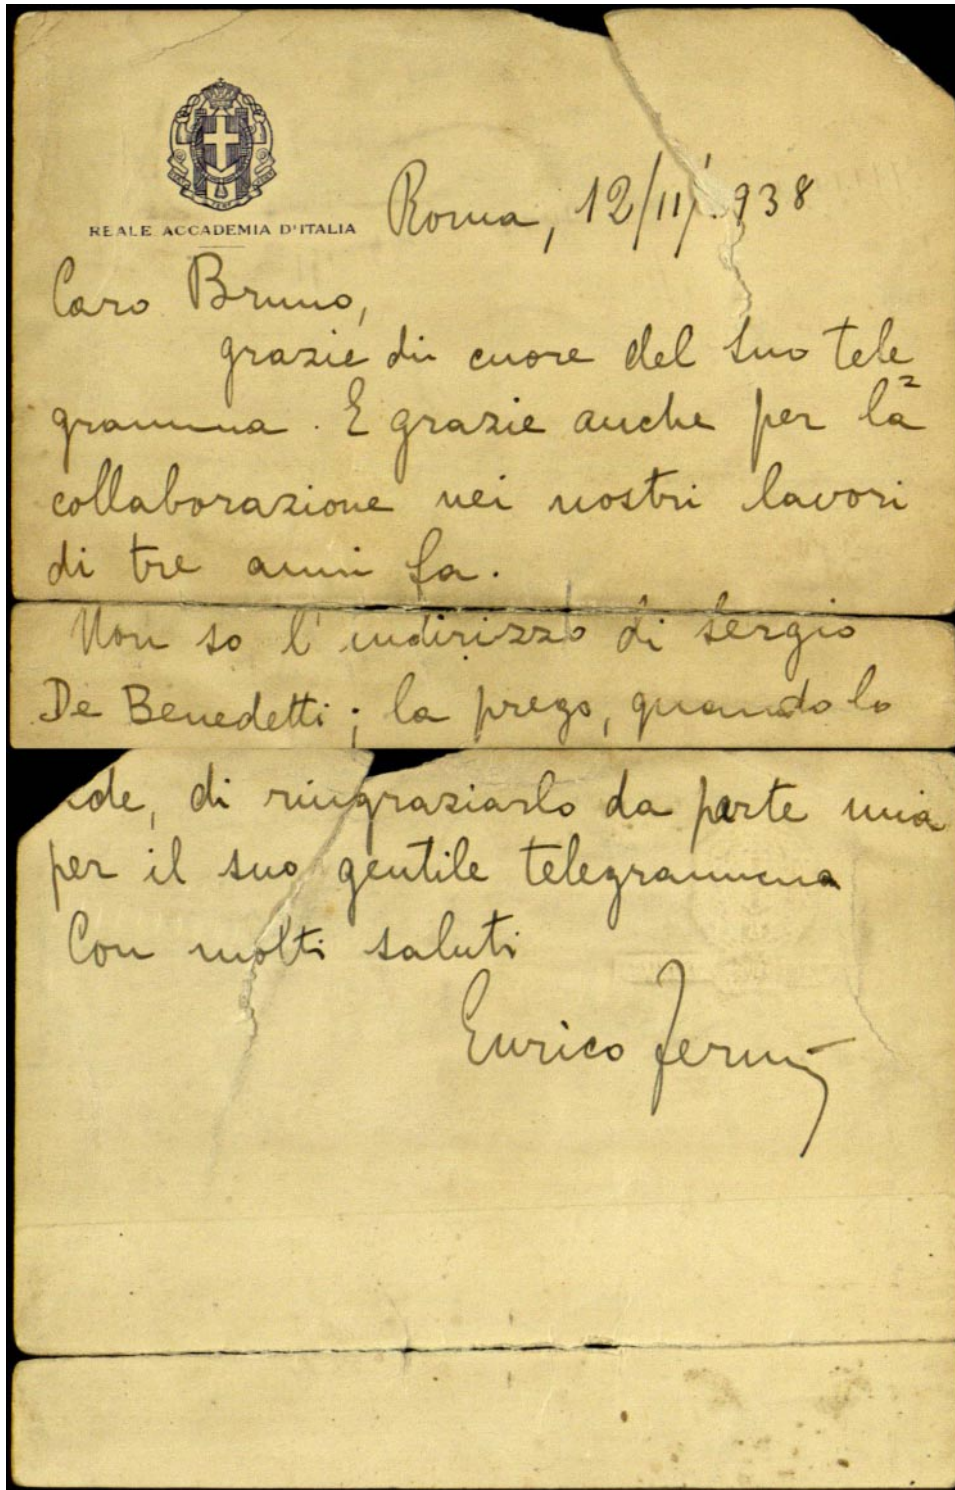 REALE ACCADEMIA D'ITALIA
Roma, 12/11/1938
Caro Bruno,
grazie di cuore del suo tele=
gramma. E grazie anche per la
collaborazione nei nostri lavori
di tre anni fa.
Non so l'indirizzo di Sergio
De Benedetti; la prego, quando lo
di ringraziarlo da parte mia
per il suo gentile telegramma
Con molti saluti
Enrico Fermi